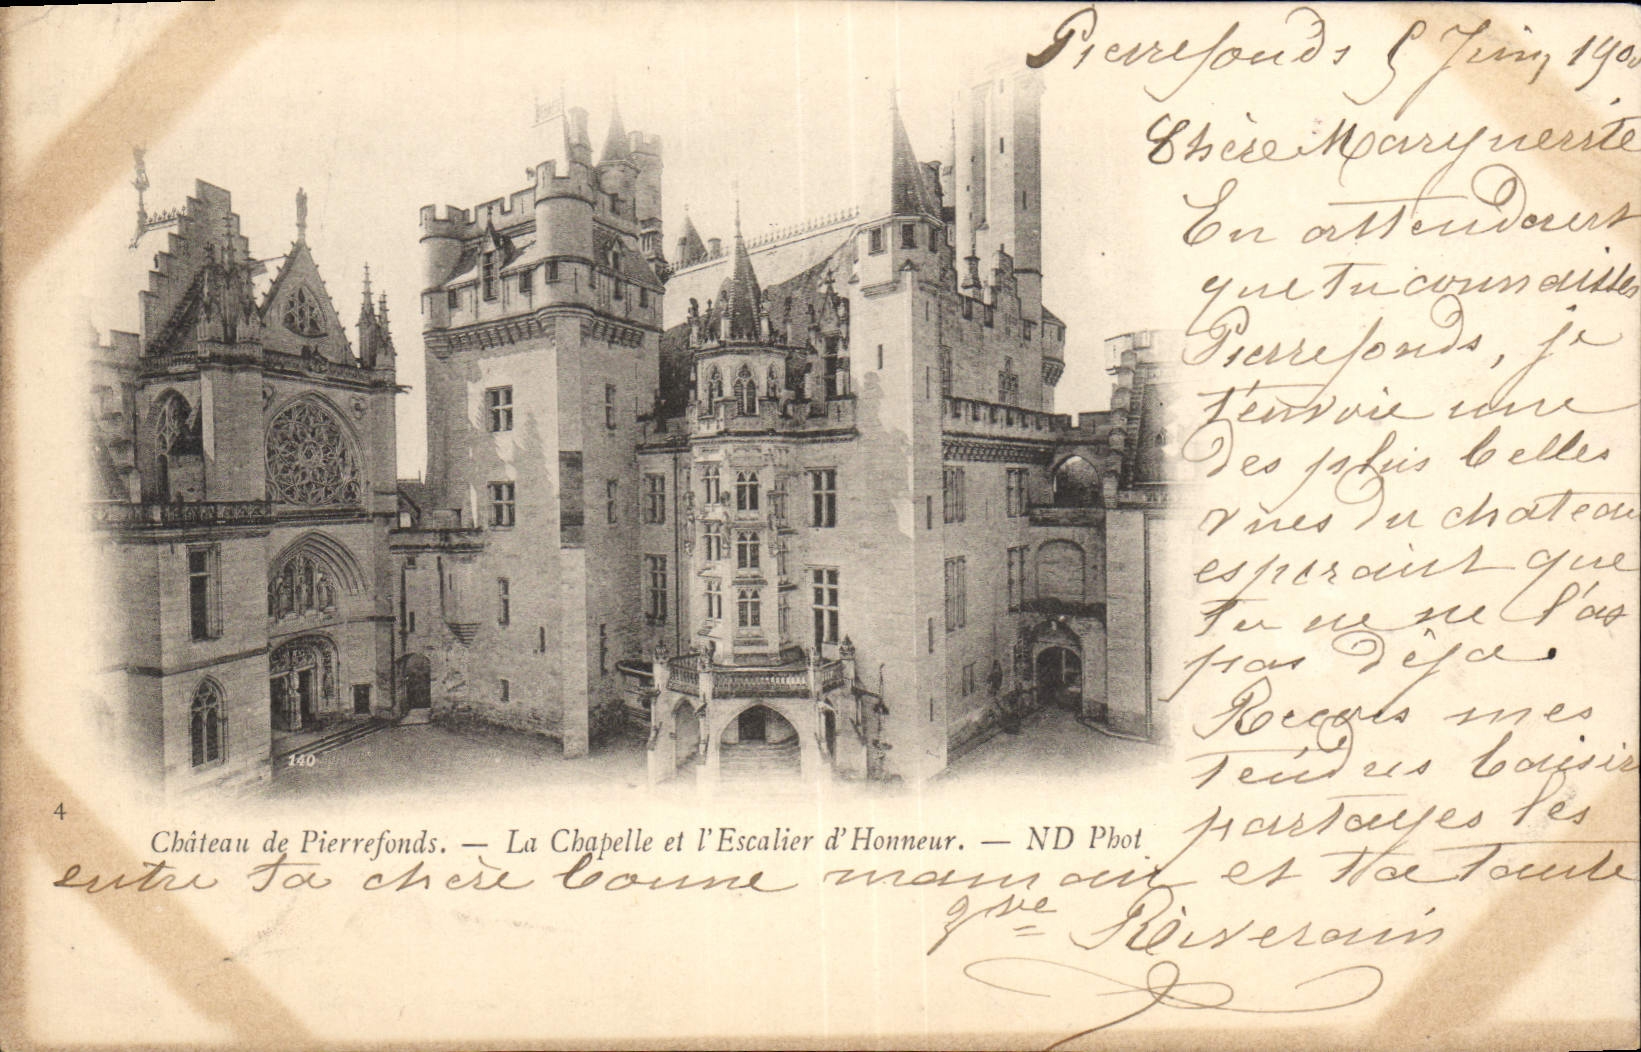 Pierrefonds 5 Juin 190
Chère Marguerite
En attendant
que tu connaisses
Pierrefonds, je
t'envoie une
des plus belles
vues du chateau
esperant que
tu ne ne l'as
pas dêja.
Reçois mes
tendres baisir
partages les
entre ta chère bonne maman et ta tante
Gve Riverain
140
4
Château de Pierrefonds. — La Chapelle et l'Escalier d'Honneur. — ND Phot